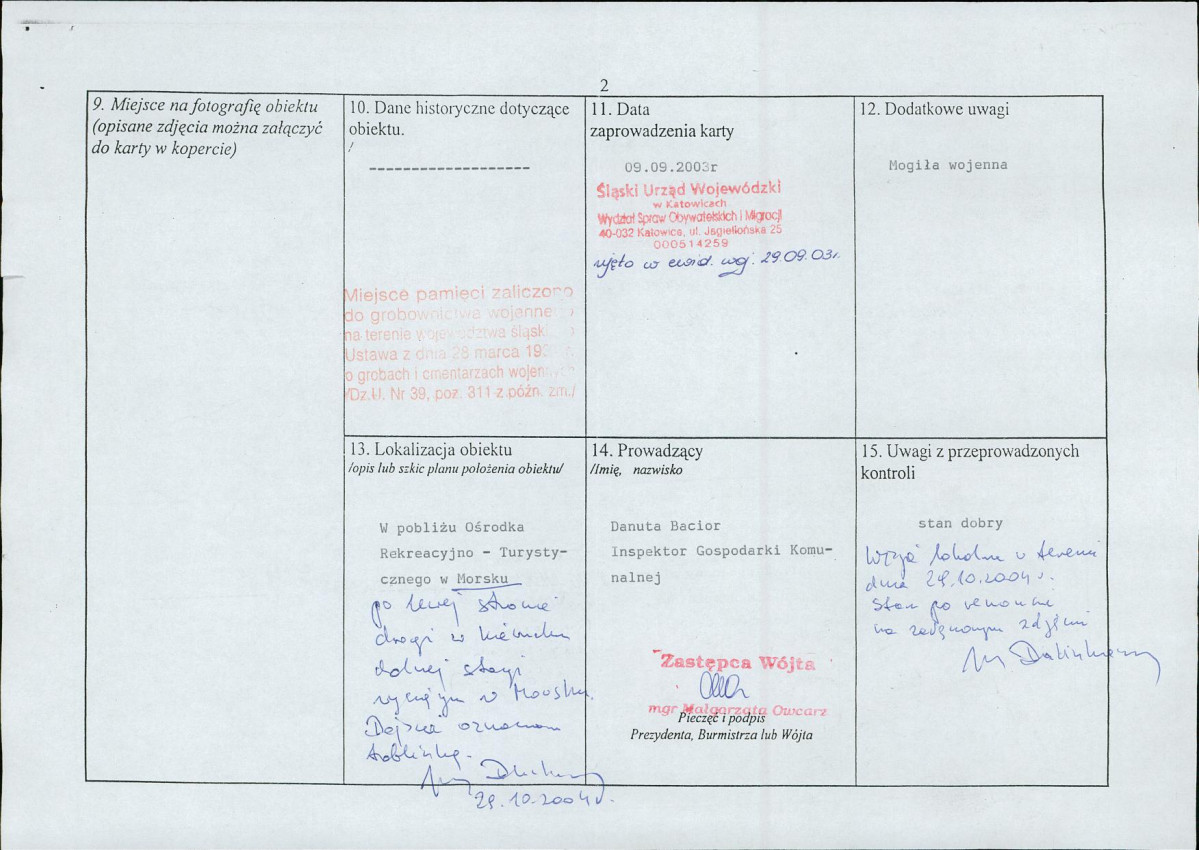 2
9. Miejsce na fotografię obiektu
(opisane zdjęcia można załączyć
do karty w kopercie)
10. Dane historyczne dotyczące
obiektu.
/
-------------------
Miejsce pamięci zaliczono
do grobownictwa wojenne
na terenie województwa śląsk
Ustawa z dnia 28 marca 19
o grobach i cmentarzach wojennych
/Dz.U. Nr 39, poz. 311 z późn. zm./
11. Data
zaprowadzenia karty
09.09.2003r
Śląski Urząd Wojewódzki
w Katowicach
Wydział Spraw Obywatelskich i Migracji
40-032 Katowice, ul. Jagiellońska 25
000514259
ujęto w ewid. woj. 29.09.03r.
12. Dodatkowe uwagi
Mogiła wojenna
13. Lokalizacja obiektu
/opis lub szkic planu położenia obiektu/
W pobliżu Ośrodka
Rekreacyjno - Turysty-
cznego w Morsku
po lewej stronie
drogi w kierunku
dolnej stacji
wyciągu w Morsku.
Dojście
tabliczką.
29.10.2004r.
14. Prowadzący
/Imię, nazwisko
Danuta Bacior
Inspektor Gospodarki Komu-
nalnej
Zastępca Wójta
mgr Małgorzata Owcarz
Pieczęć i podpis
Prezydenta, Burmistrza lub Wójta
15. Uwagi z przeprowadzonych
kontroli
stan dobry
Wizja lokalna w terenie
dnia 29.10.2004r.
Stan po remoncie
na załączonym zdjęciu